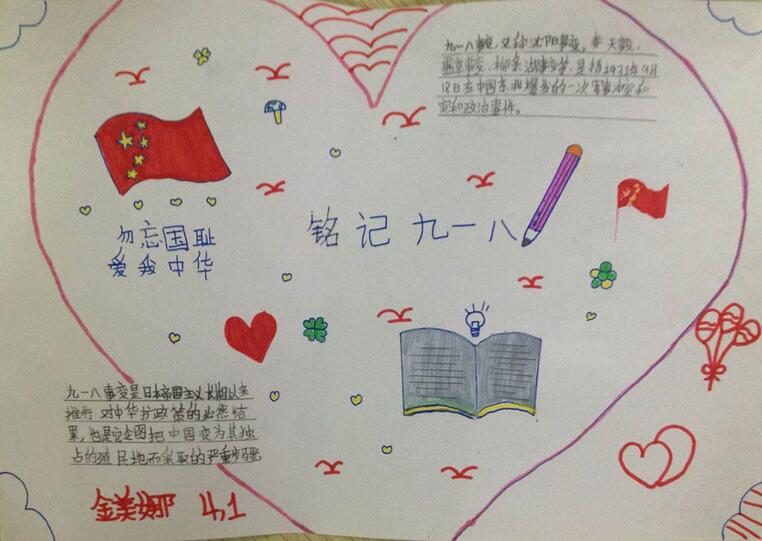 九一八事变,又称沈阳事变,奉天事变,
盛京事变、柳条湖事变等,是指1931年9月
18日在中国东北爆发的一次军事冲突和
突和政治事件。
铭记九一八
勿忘国耻
爱我中华
九一八事变是日本帝国主义长期以来
推行对中华扩政策的必然结
果,也是企图把中国变为其独
占的殖民地而采取的严重步骤
金美娜 4,1